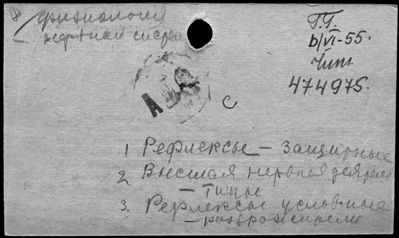 физиология
– нервная систем
Т.Ч.
6/VI-55.
474975.
А
С
1 Рефлексы – защитные
2 Высшая нервная деят
– типы
3. Рефлексы условные
– раздражители